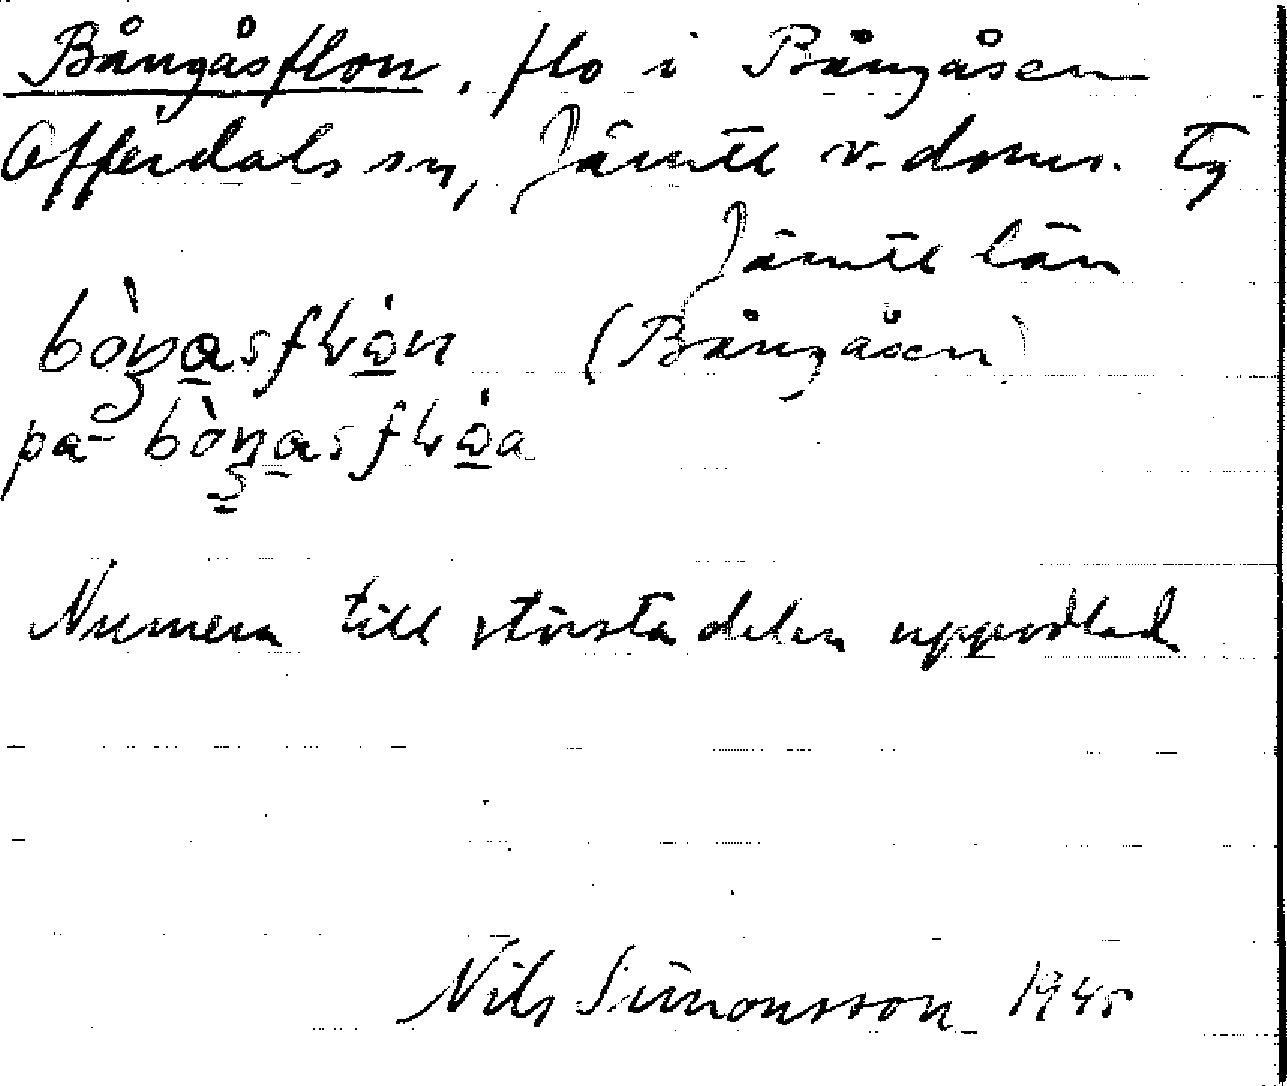 Bångåsflon, flo i Bångåsen
Offerdals sn, Jämtl v. doms. Tg
Jämtl län
bòŋa̠sfɫo̠n (Bångåsen)
på bòŋa̠sfɫo̠a
Numera till största delen uppodlad
Nils Simonsson 1945